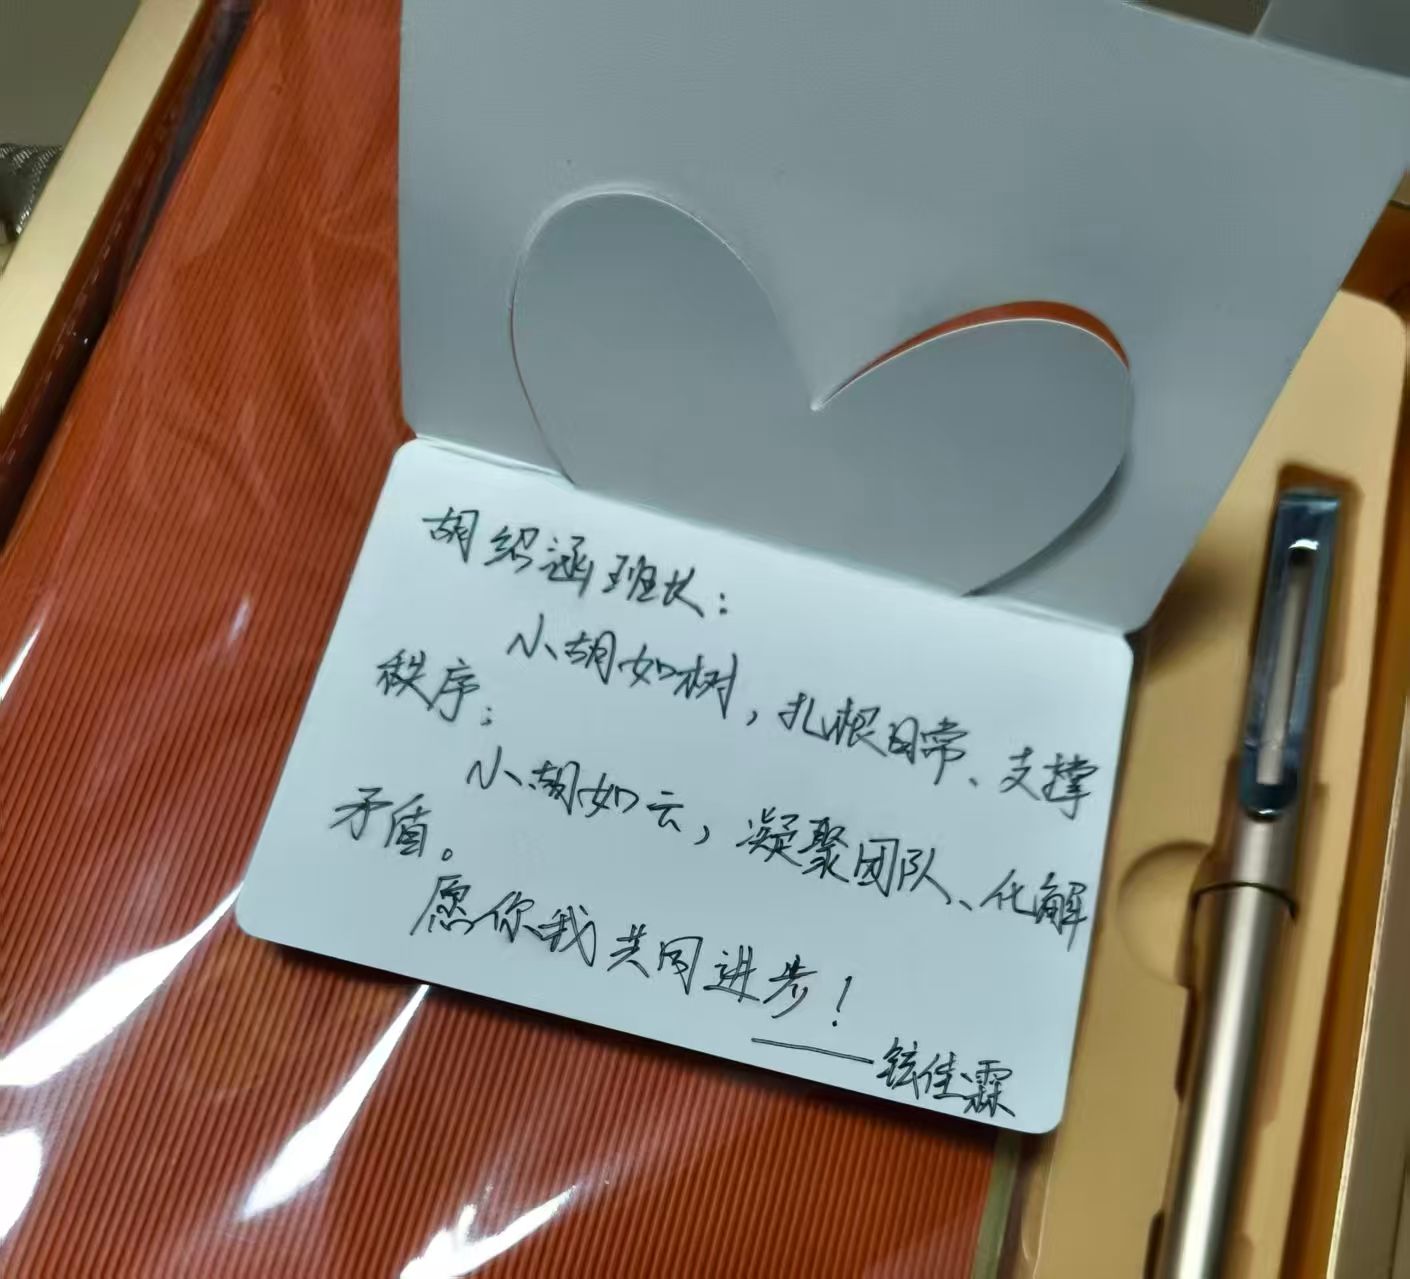 胡绍涵班长：
小胡如树，扎根日常、支撑
秩序；
小胡如云，凝聚团队、化解
矛盾。
愿你我共同进步！
——铉佳霖